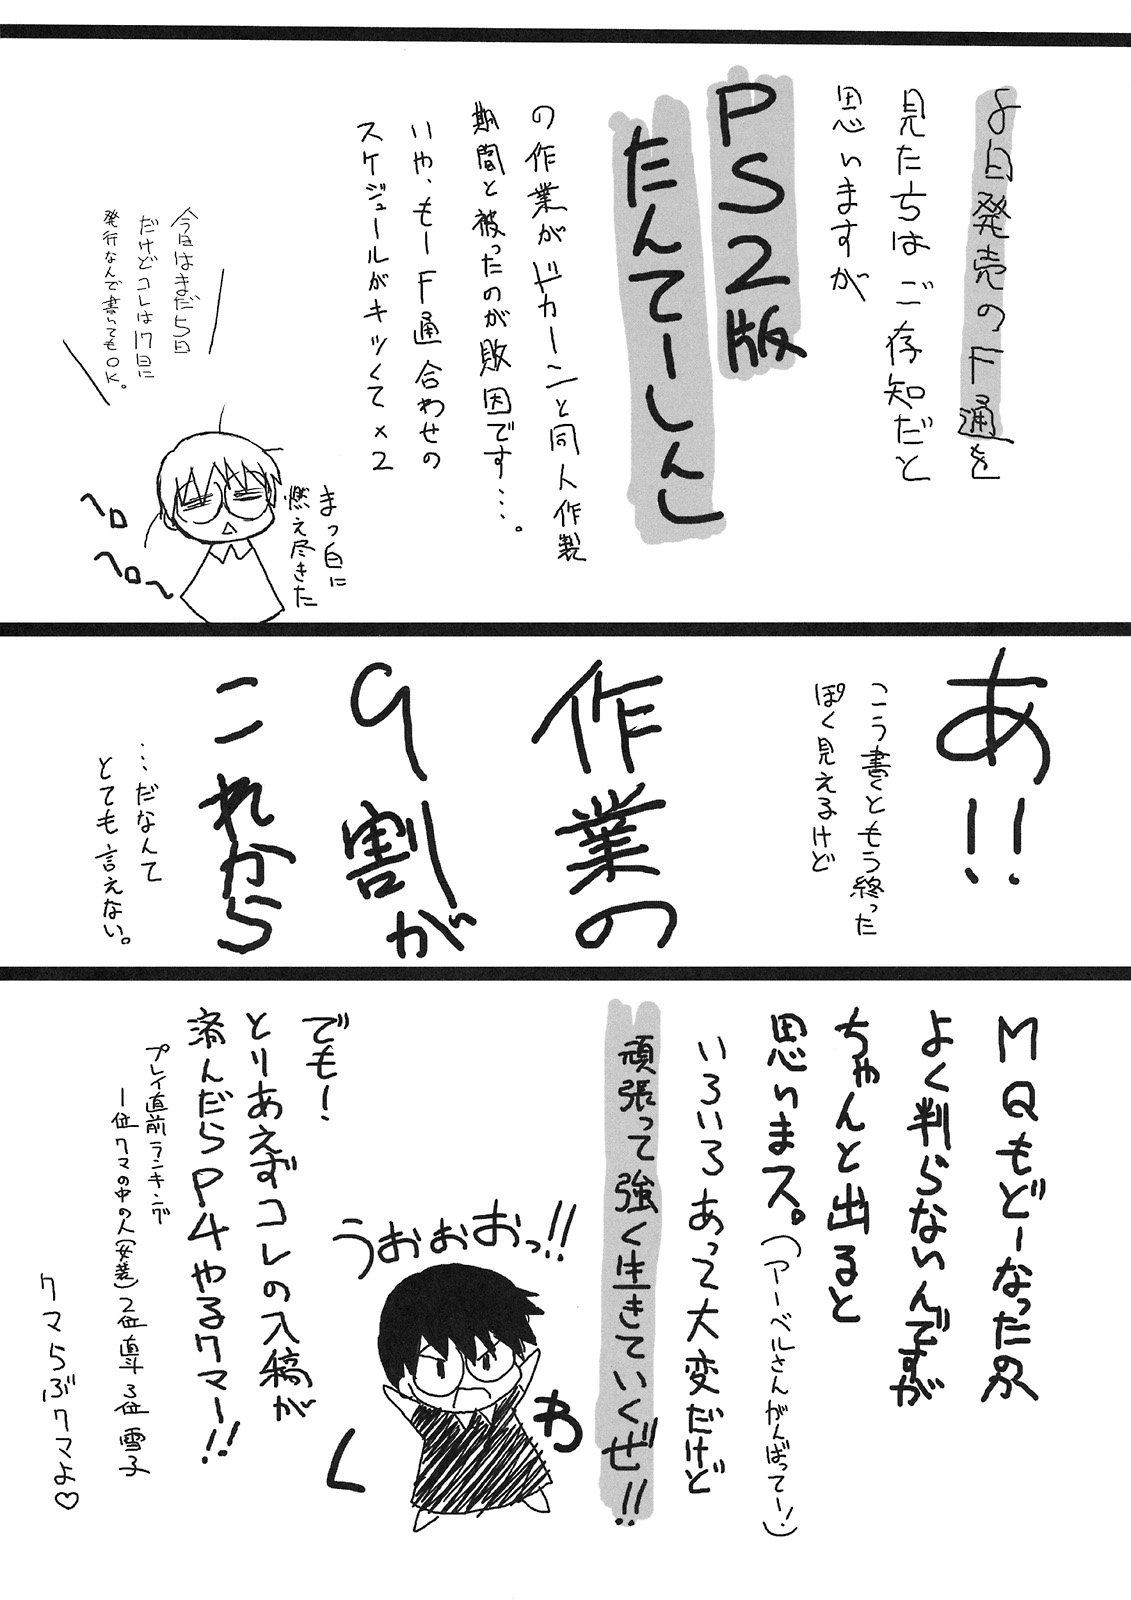 8日発売のF通を
見たちはご存知だと
思いますが
PS2版
たんてーしんし
の作業がドカーンと同人作製
期間と被ったのが敗因です…。
いや、もーF通合わせの
スケジュールがキツくて×2
まっ白に
燃え尽きた
ヘロ
ヘロ〜
今日はまだ5日
だけどコレは17日に
発行なんで書いてもOK。
あ!!
こう書くともう終った
ぽく見えるけど
作業の
9割が
これから
…だなんて
とても言えない。
MQもどーなったのか
よく判らないんですが
ちゃんと出ると
思いまス。(アーベルさんがんばってー!)
いろいろあって大変だけど
頑張って強く生きていくぜ!!
うおぉぉおっ!!
わ
く
でも!
とりあえずコレの入稿が
済んだらP4やるクマー!!
プレイ直前ランキング
1位クマの中の人(女装)2位直斗3位雪子
クマらぶクマよ♡